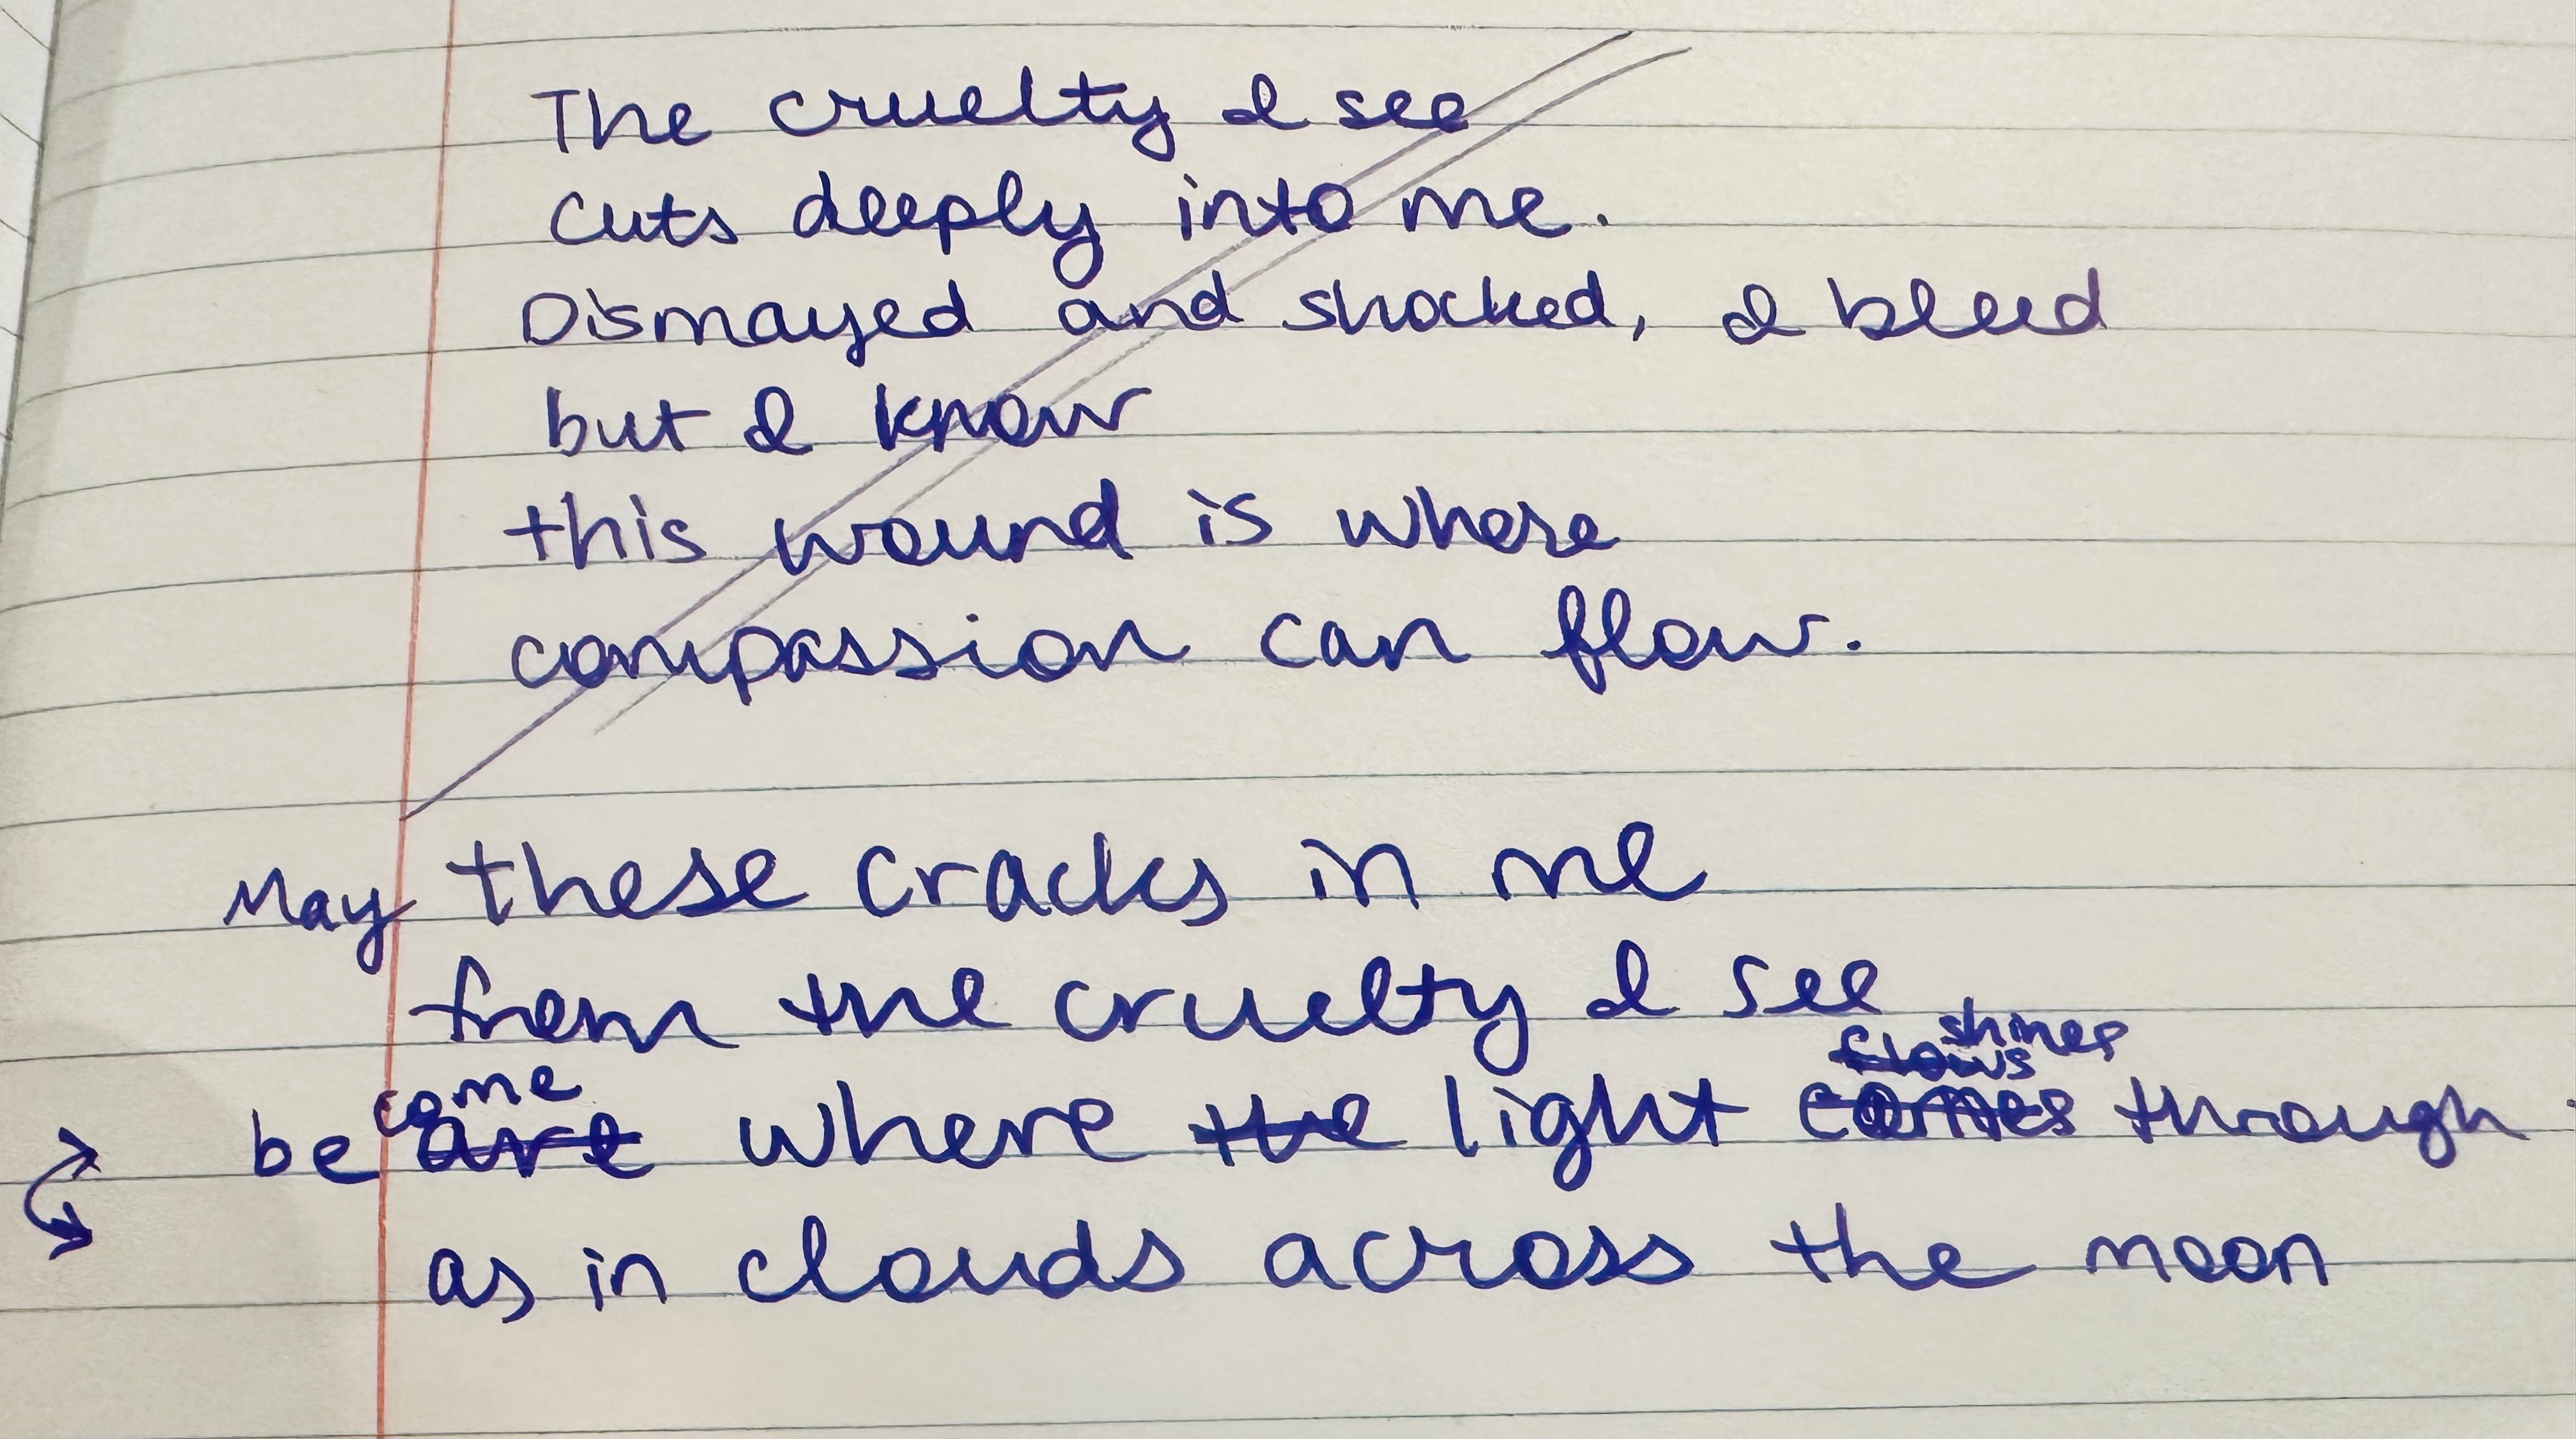 The cruelty I see
cuts deeply into me.
Dismayed and shocked, I bleed
but I know
this wound is where
compassion can flow.
May these cracks in me
from the cruelty I see
shines
flows
become are where the light comes through.
as in clouds across the moon